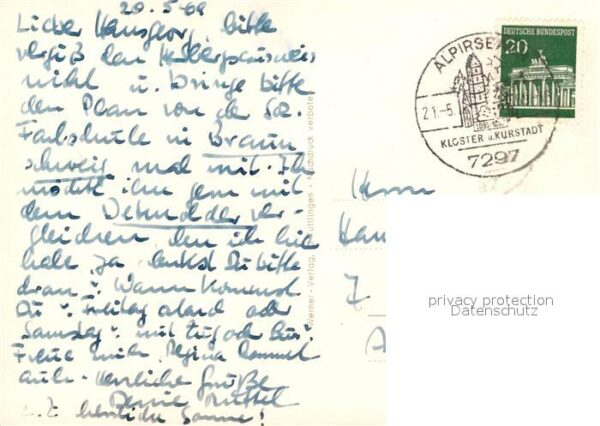 20.5.69
Lieber Hansgeorg, bitte
vergiß den Herbergsausweis
nicht u. bringe bitte
den Plan von der Soz.
Fachschule in Braun
schweig mal mit. Ich
möchte ihn gern mit
dem Detmolder ver-
gleichen, den ich hie
habe ja denkst Du bitte
dran". Wann kommst
Du". Freitag abend oder
Samstag". mit Zug oder Bus".
Freue mich. Regina Rommel
auch. Herzliche Grüße
Deine Mutter
z. Z. herrliche Sonne!
Werner-Verlag, Reutlingen - Nachdruck verboten
ALPIRSB
21.-5.
KLOSTER u. KURSTADT
7297
DEUTSCHE BUNDESPOST
20
Herrn
Han
7
A
privacy protection
Datenschutz